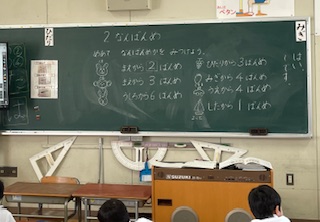 2 なんばんめ
めあて なんばんめかを みつけよう。
まえから 2 ばんめ
まえから 3 ばんめ
うしろから 6 ばんめ
ひだりから 3 ばんめ
みぎから 4 ばんめ
うえから 4 ばんめ
したから 1 ばんめ
ひだり
みぎ
はい、
です。
SUZUKI